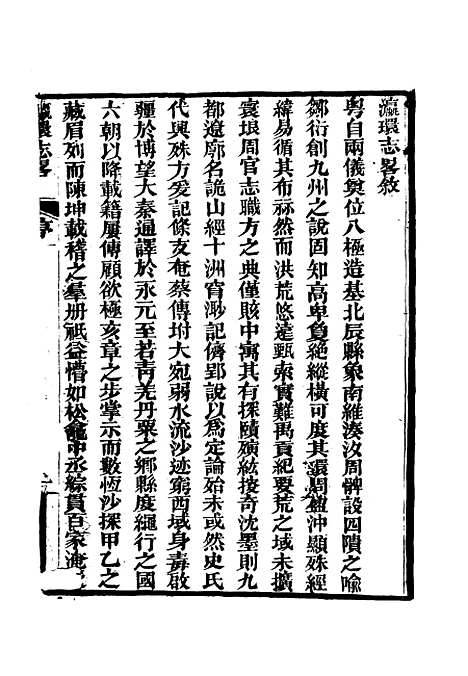 瀛環志畧敘
粤自兩儀奠位八極造基北辰縣象南維湊汝周髀設四隤之喻
鄒衍創九州之說固知高卑夐絶縱橫可度其環周盤沖顯殊經
緯易循其布祘然而洪荒悠遠甄索實難禹貢紀要荒之域未擴
寰垠周官志職方之典僅賅中寓其有探賾殯紘接奇沈墨則九
都遼廓名詭山經十洲窅渺記儕郢說以為定論始未或然史氏
代興殊方爰記條支奄蔡傳坿大宛弱水流沙迹窮西域身毒啟
疆於博望大秦通譯於永元至若青羌丹粟之鄉縣度繩行之國
六朝以降載籍屢傳顧欲極亥章之步掌示而數恆沙探甲乙之
藏眉列而陳坤載稽之羣冊祇益懵如松龕中丞綜貫百家淹
瀛環志畧
序